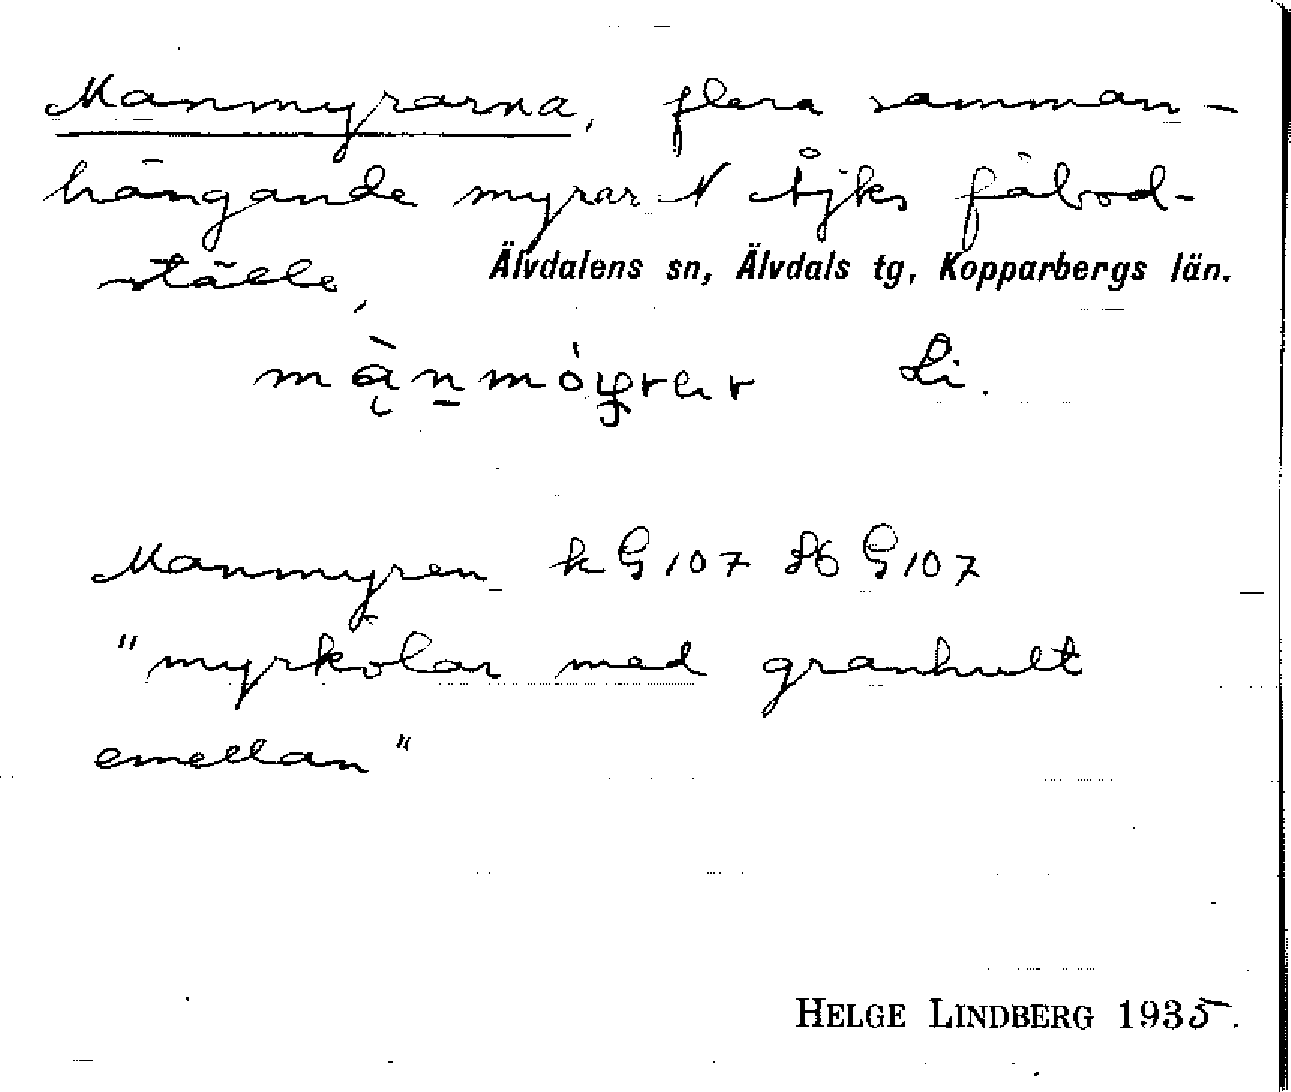 Manmyrarna, flera samman-
hängande myrar N Åjks fäbod-
ställe,
Älvdalens sn, Älvdals tg, Kopparbergs län.
Li.
Manmyren k G 107 G 107
"myrkölar med granhult
emellan"
HELGE LINDBERG 1935.